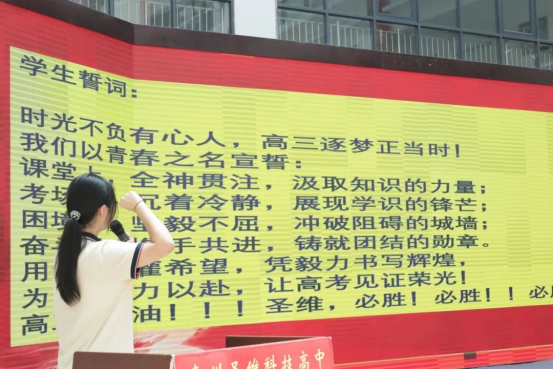 学生誓词：
时光不负有心人，高三逐梦正当时！
我们以青春之名宣誓：
课堂 全神贯注，汲取知识的力量；
考场 沉着冷静，展现学识的锋芒；
困境 坚毅不屈，冲破阻碍的城墙；
奋 手共进，铸就团结的勋章。
用 希望，凭毅力书写辉煌，
为 力以赴，让高考见证荣光！
高 油！！！圣维，必胜！必胜！！必
圣维科技高中